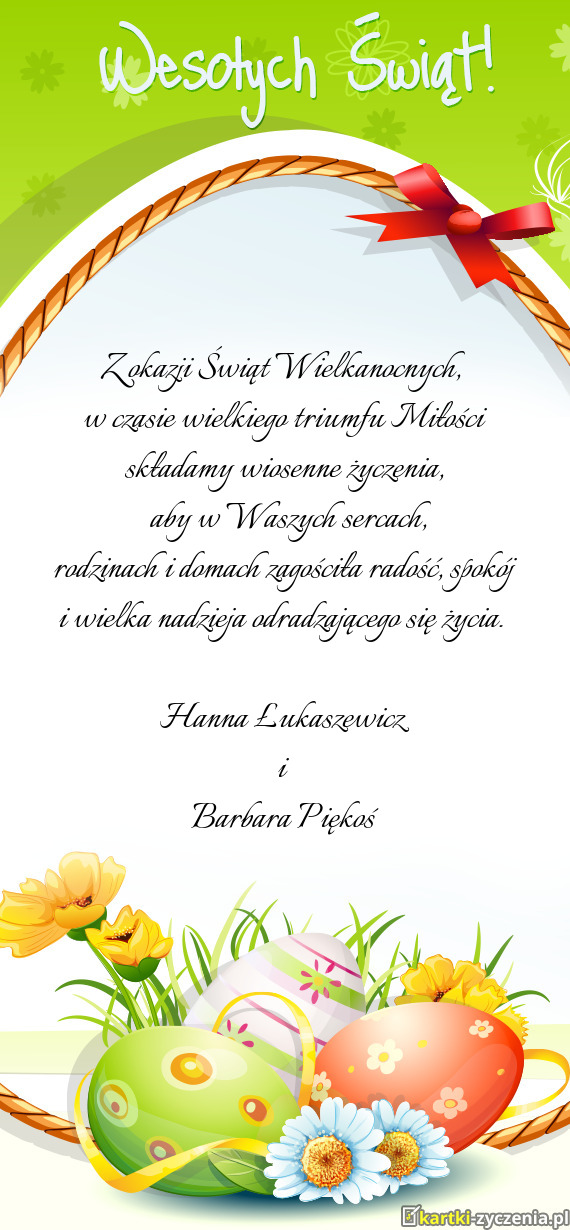 Wesołych Świąt!
Z okazji Świąt Wielkanocnych,
w czasie wielkiego triumfu Miłości
składamy wiosenne życzenia,
aby w Waszych sercach,
rodzinach i domach zagościła radość, spokój
i wielka nadzieja odradzającego się życia.
Hanna Łukaszewicz
i
Barbara Piękoś
kartki-zyczenia.pl